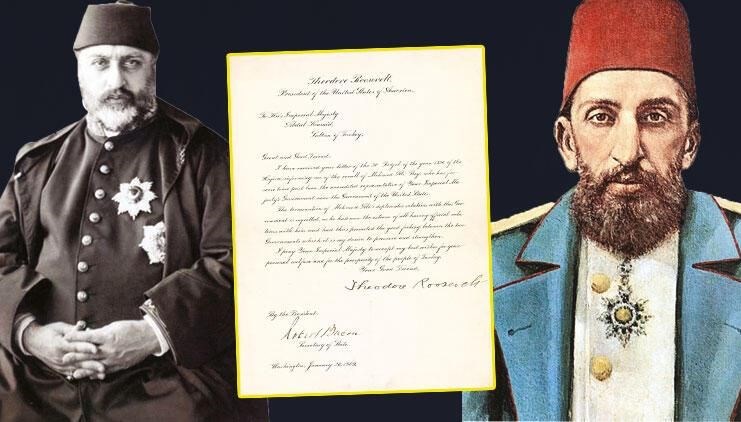 Theodore Roosevelt,
President of the United States of America,
To His Imperial Majesty
Abdul Hamid,
Sultan of Turkey.
Great and Good Friend:
I have received your letter of the of the year of the
informing me of the recall of Mehmed Ali Bey, who has for
some time past been the accredited representative of Your Imperial Ma-
jesty's Government near the Government of the United States.
The termination of Mehmed Ali's diplomatic relation with this Gov-
ernment is regretted, as he had won the esteem of all having official rela-
tions with him and had thus promoted the good feeling between the two
Governments which it is my desire to preserve and strengthen.
I pray Your Imperial Majesty to accept my best wishes for your
personal welfare and for the prosperity of the people of Turkey.
Your Good Friend,
Theodore Roosevelt
By the President:
Robert Bacon
Secretary of State.
Washington, January 1909.